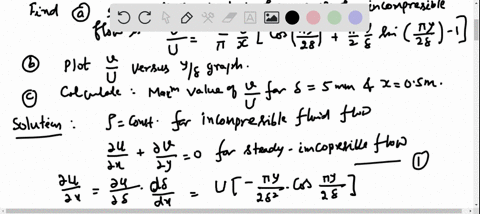 Find (a) for incompresible
flow v/U = 1/π δ/x [cos(πy/2δ) + π/2 y/δ sin(πy/2δ) - 1]
(b) Plot v/U versus y/δ graph.
(c) Calculate : Maxm value of v/U for δ = 5 mm & x = 0.5m.
Solution : ρ = Const. for incompresible fluid flow
∂u/∂x + ∂v/∂y = 0 for steady-incopresible flow ①
∂u/∂x = ∂u/∂δ · dδ/dx = U[-πy/2δ² · cos πy/2δ]